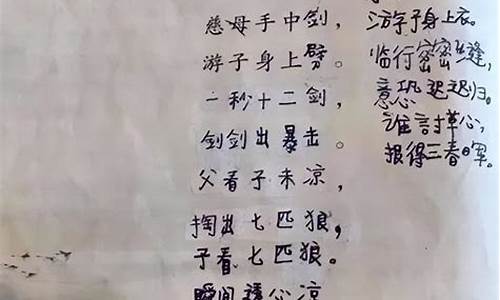 慈母手中剑，
游子身上劈。
一秒十二剑，
剑剑出暴击。
父看子未凉，
掏出七匹狼，
子看七匹狼。
瞬间透心凉
游子身上衣。
临行密密缝，
意恐迟迟归。
谁討草心，
报得三春日军。